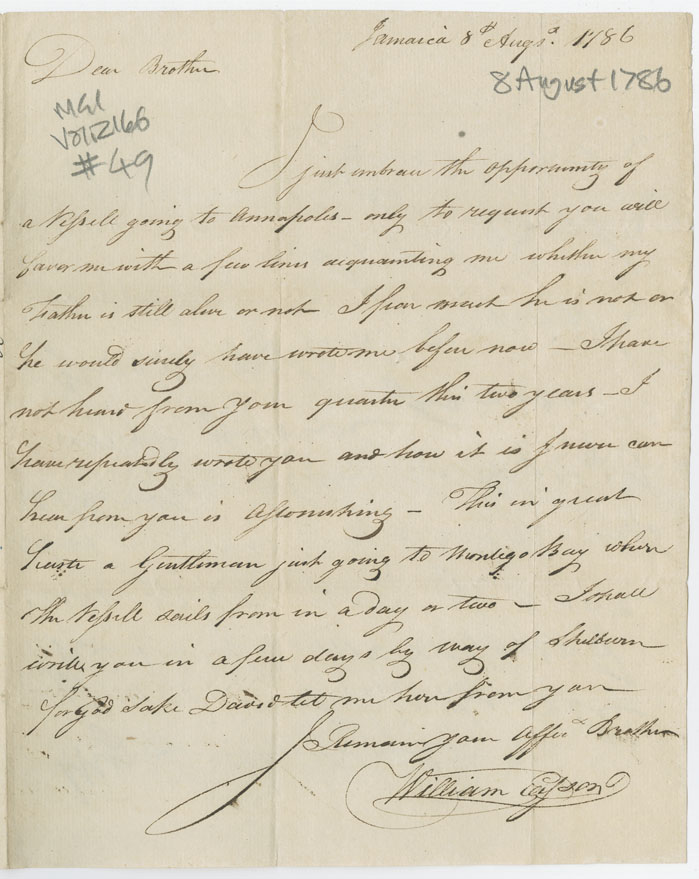 Jamaica 8th Augst. 1786
8 August 1786
Dear Brother
MG1
Vol 2166
#49
I just embrace the opportunity of
a Vessell going to Annapoles - only to request you will
favor me with a few lines acquainting me whether my
Father is still alive or not I fear much he is not or
he would surely have wrote me before now - I have
not heard from your quarter this two years - I
have repeatedly wrote you and how it is I never can
hear from you is Astonishing - This in great
haste a Gentleman just going to Montego Bay where
the Vessell sails from in a day or two - I shall
write you in a few days by way of Shelburn
for God sake David let me hear from you
I Remain your Affect Brother
William Easson